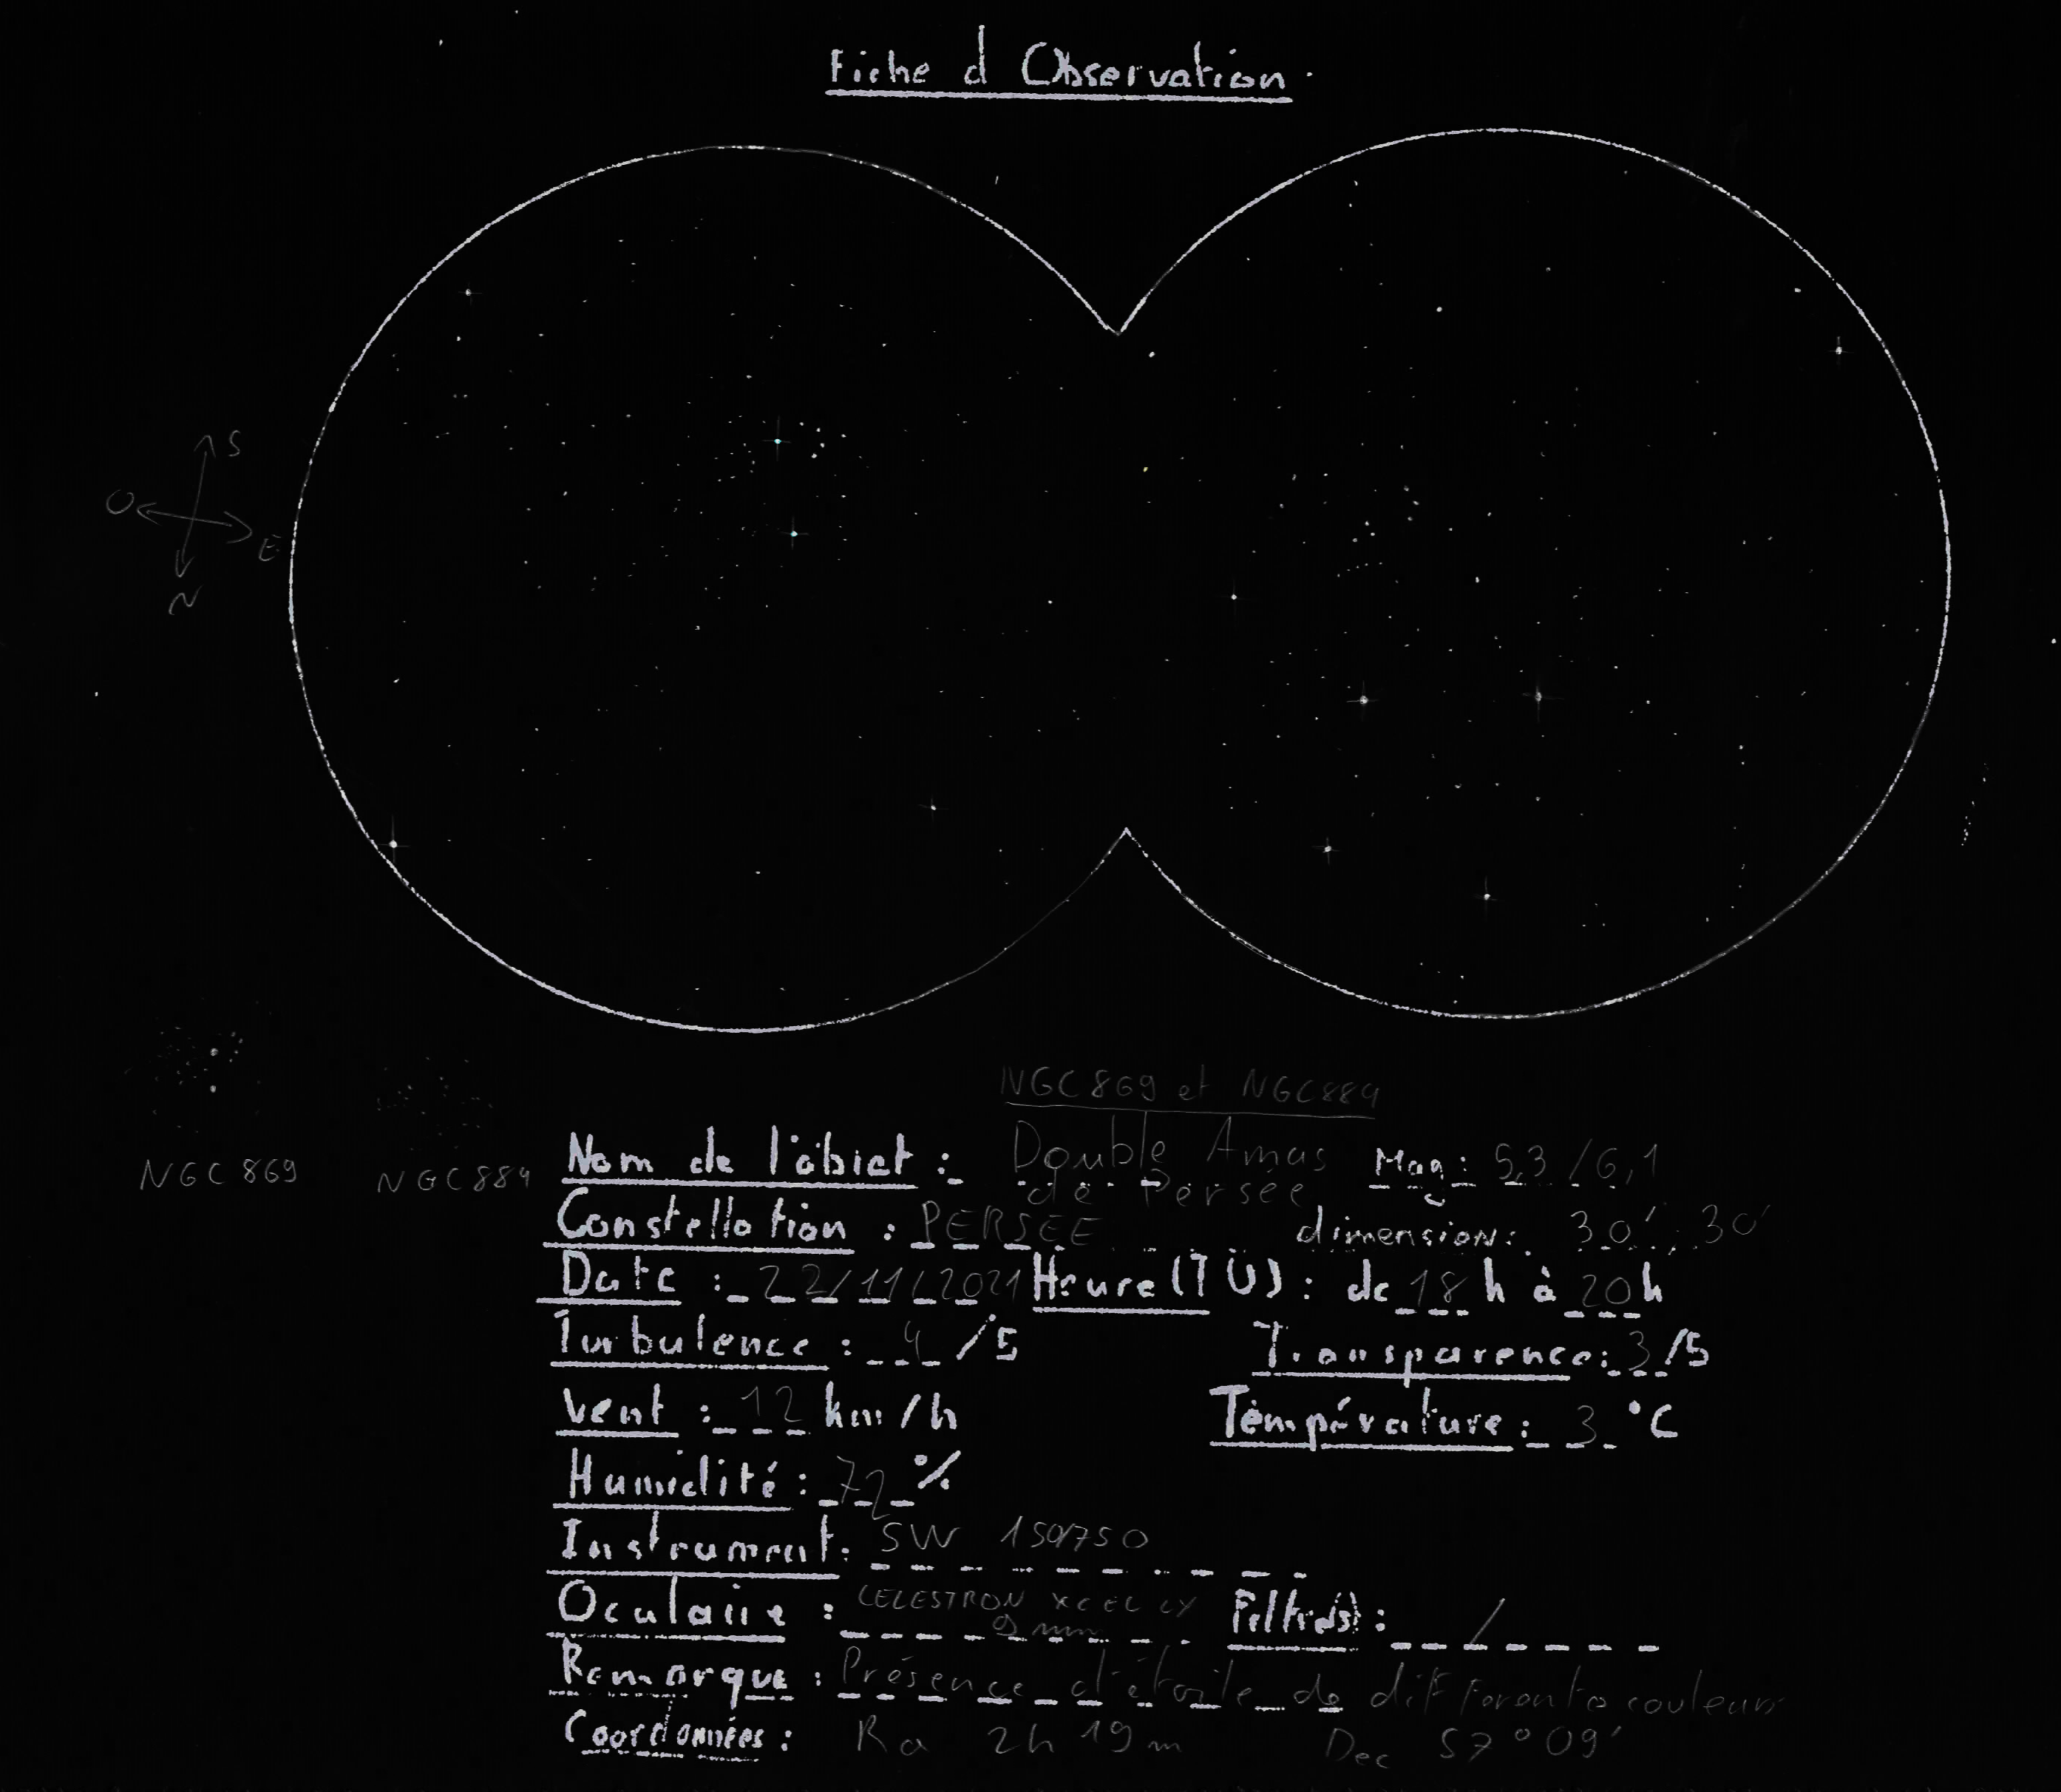 Fiche d Observation
S
O
E
N
NGC 869 et NGC 884
NGC 869 NGC 884
Nom de l'objet : Double Amas de Persée Mag : 5,3 / 6,1
Constellation : PERSEE dimension : 30' ; 30'
Date : 22/11/2021 Heure (TU) : de 18 h à 20 h
Turbulence : 4 /5 Transparence : 3 /5
Vent : 12 km/h Température : 3 °C
Humidité : 72 %
Instrument : SW 150/750
Oculaire : CELESTRON XCEL LX 9 mm Filtre(s) : /
Remarque : Présence d'étoile de différente couleurs
Coordonnées : Ra 2h 19m Dec 57° 09'